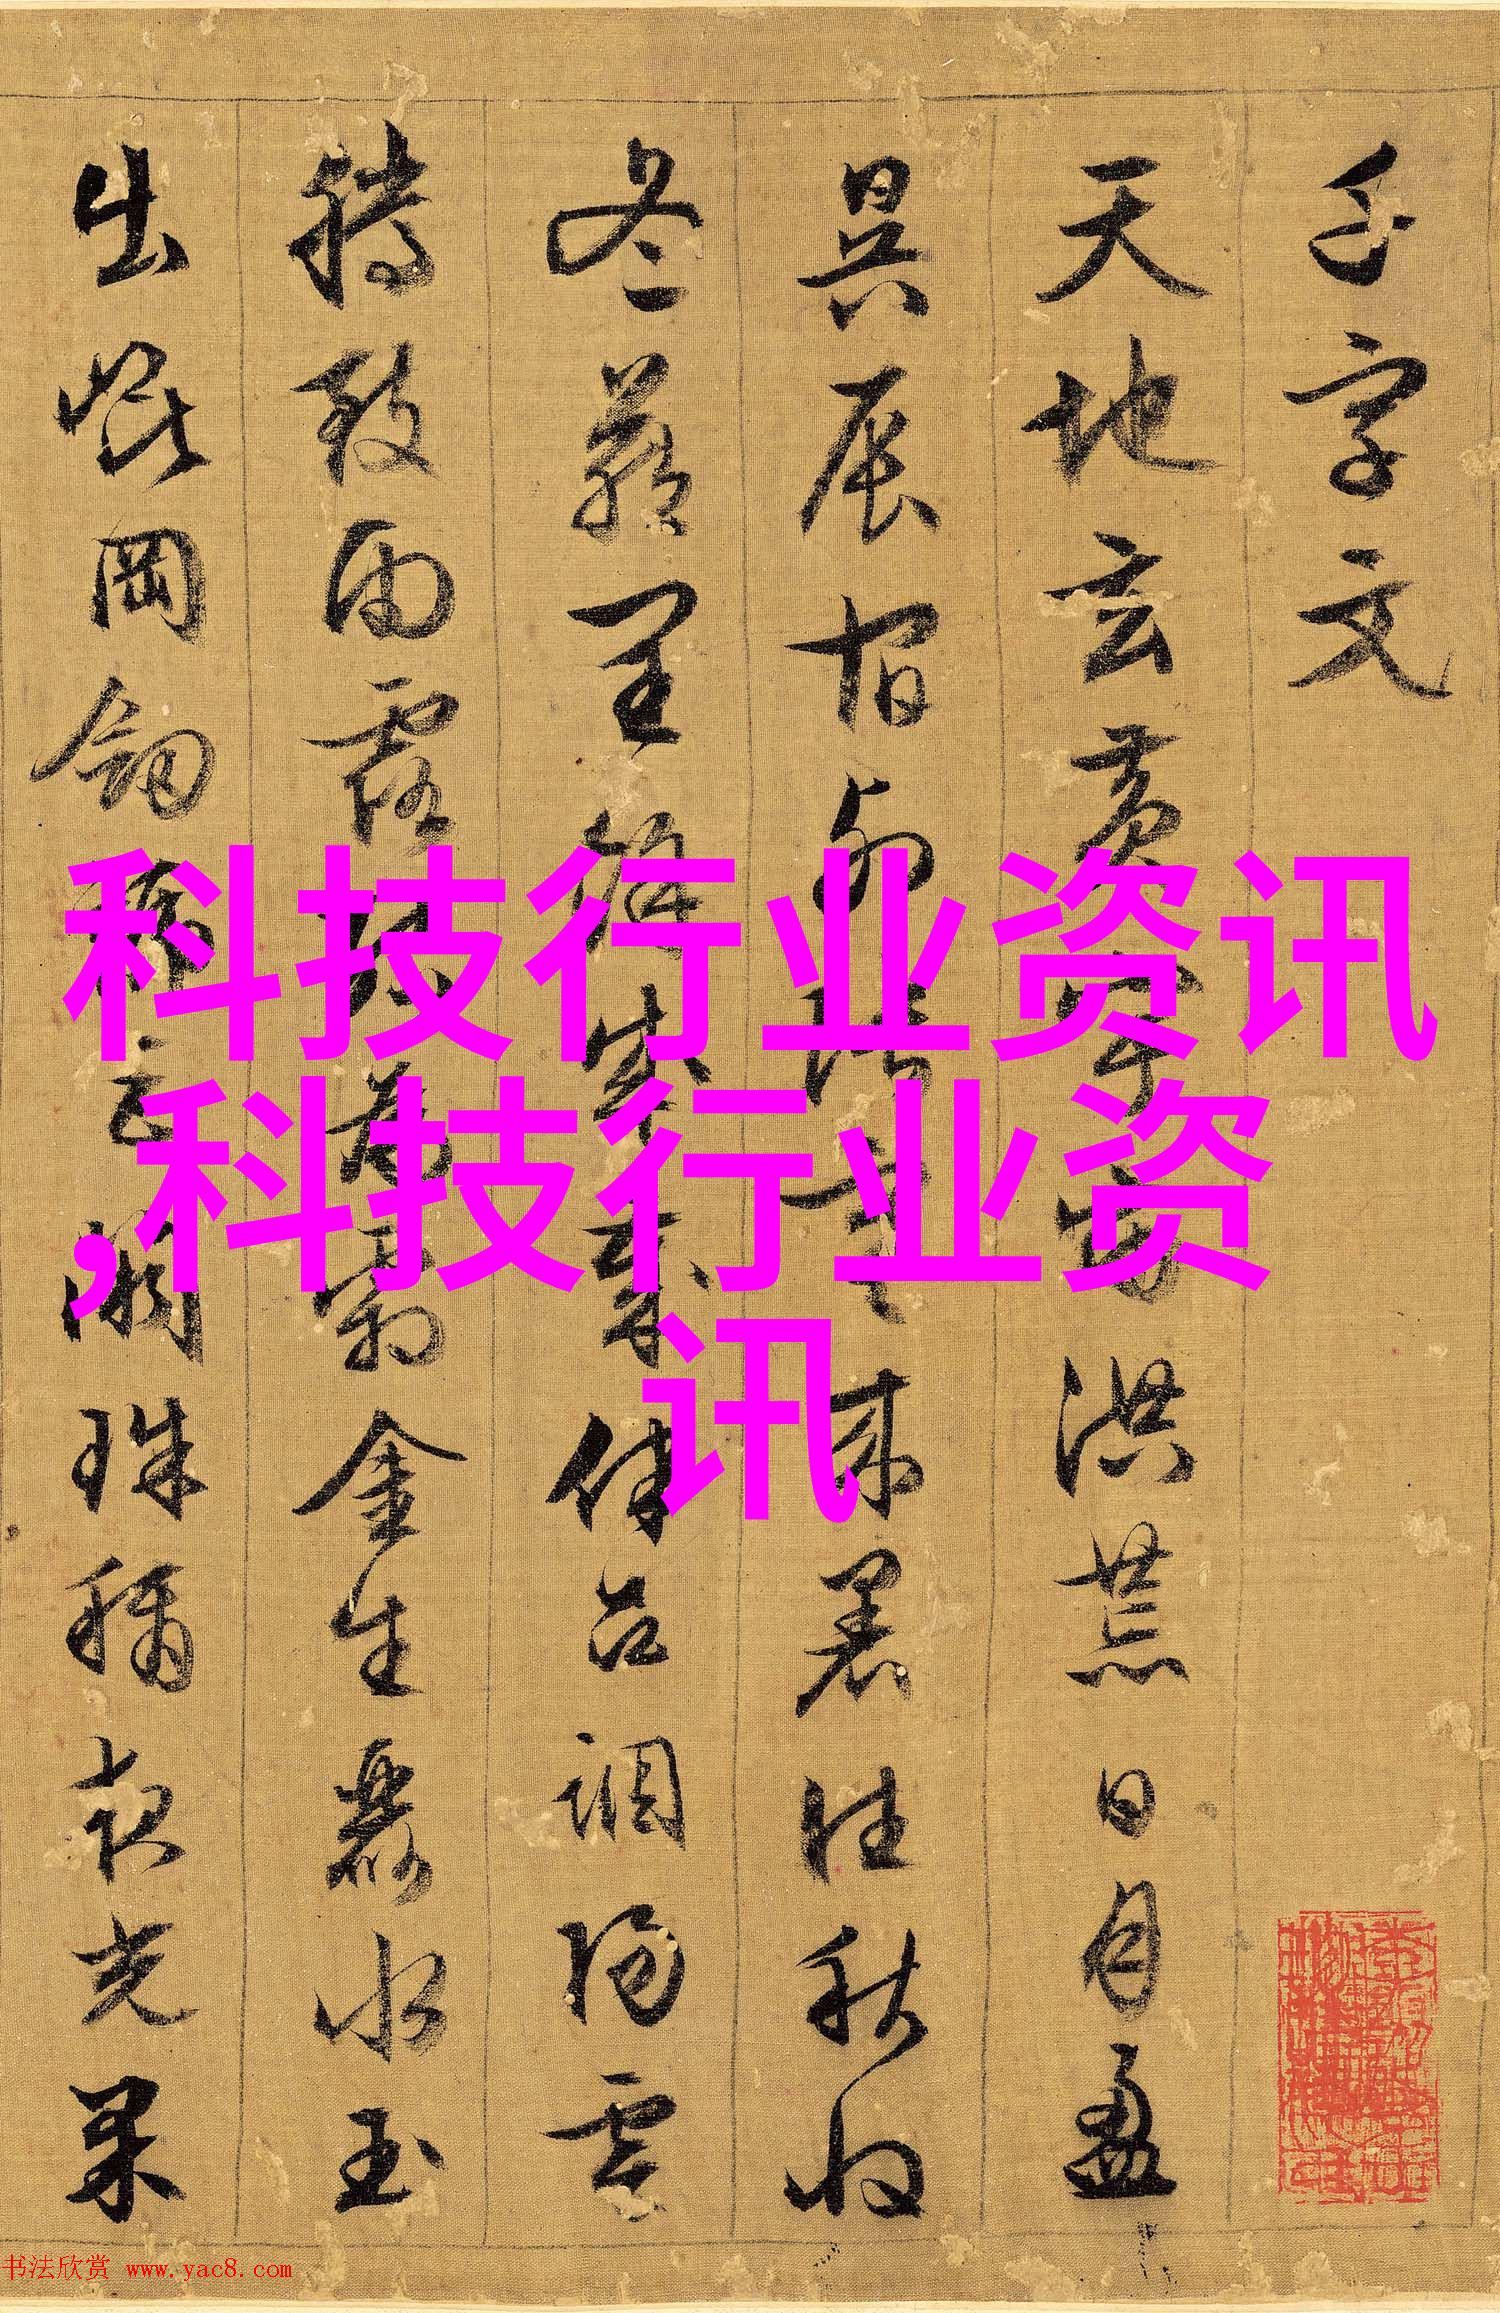 千字文
天地玄黄宇宙洪荒日月盈
昃辰宿列張寒来暑往秋收
冬藏閏餘成歲律吕調陽雲
騰致雨露結為霜金生麗水玉
出崐岡劒號巨闕珠稱夜光果
科技行业资讯
,科技行业资
讯
书法欣赏 www.yac8.com